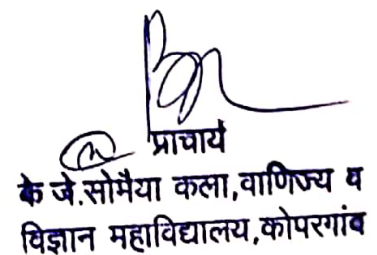 प्राचार्य
के जे.सोमैया कला,वाणिज्य व
विज्ञान महाविद्यालय,कोपरगांव